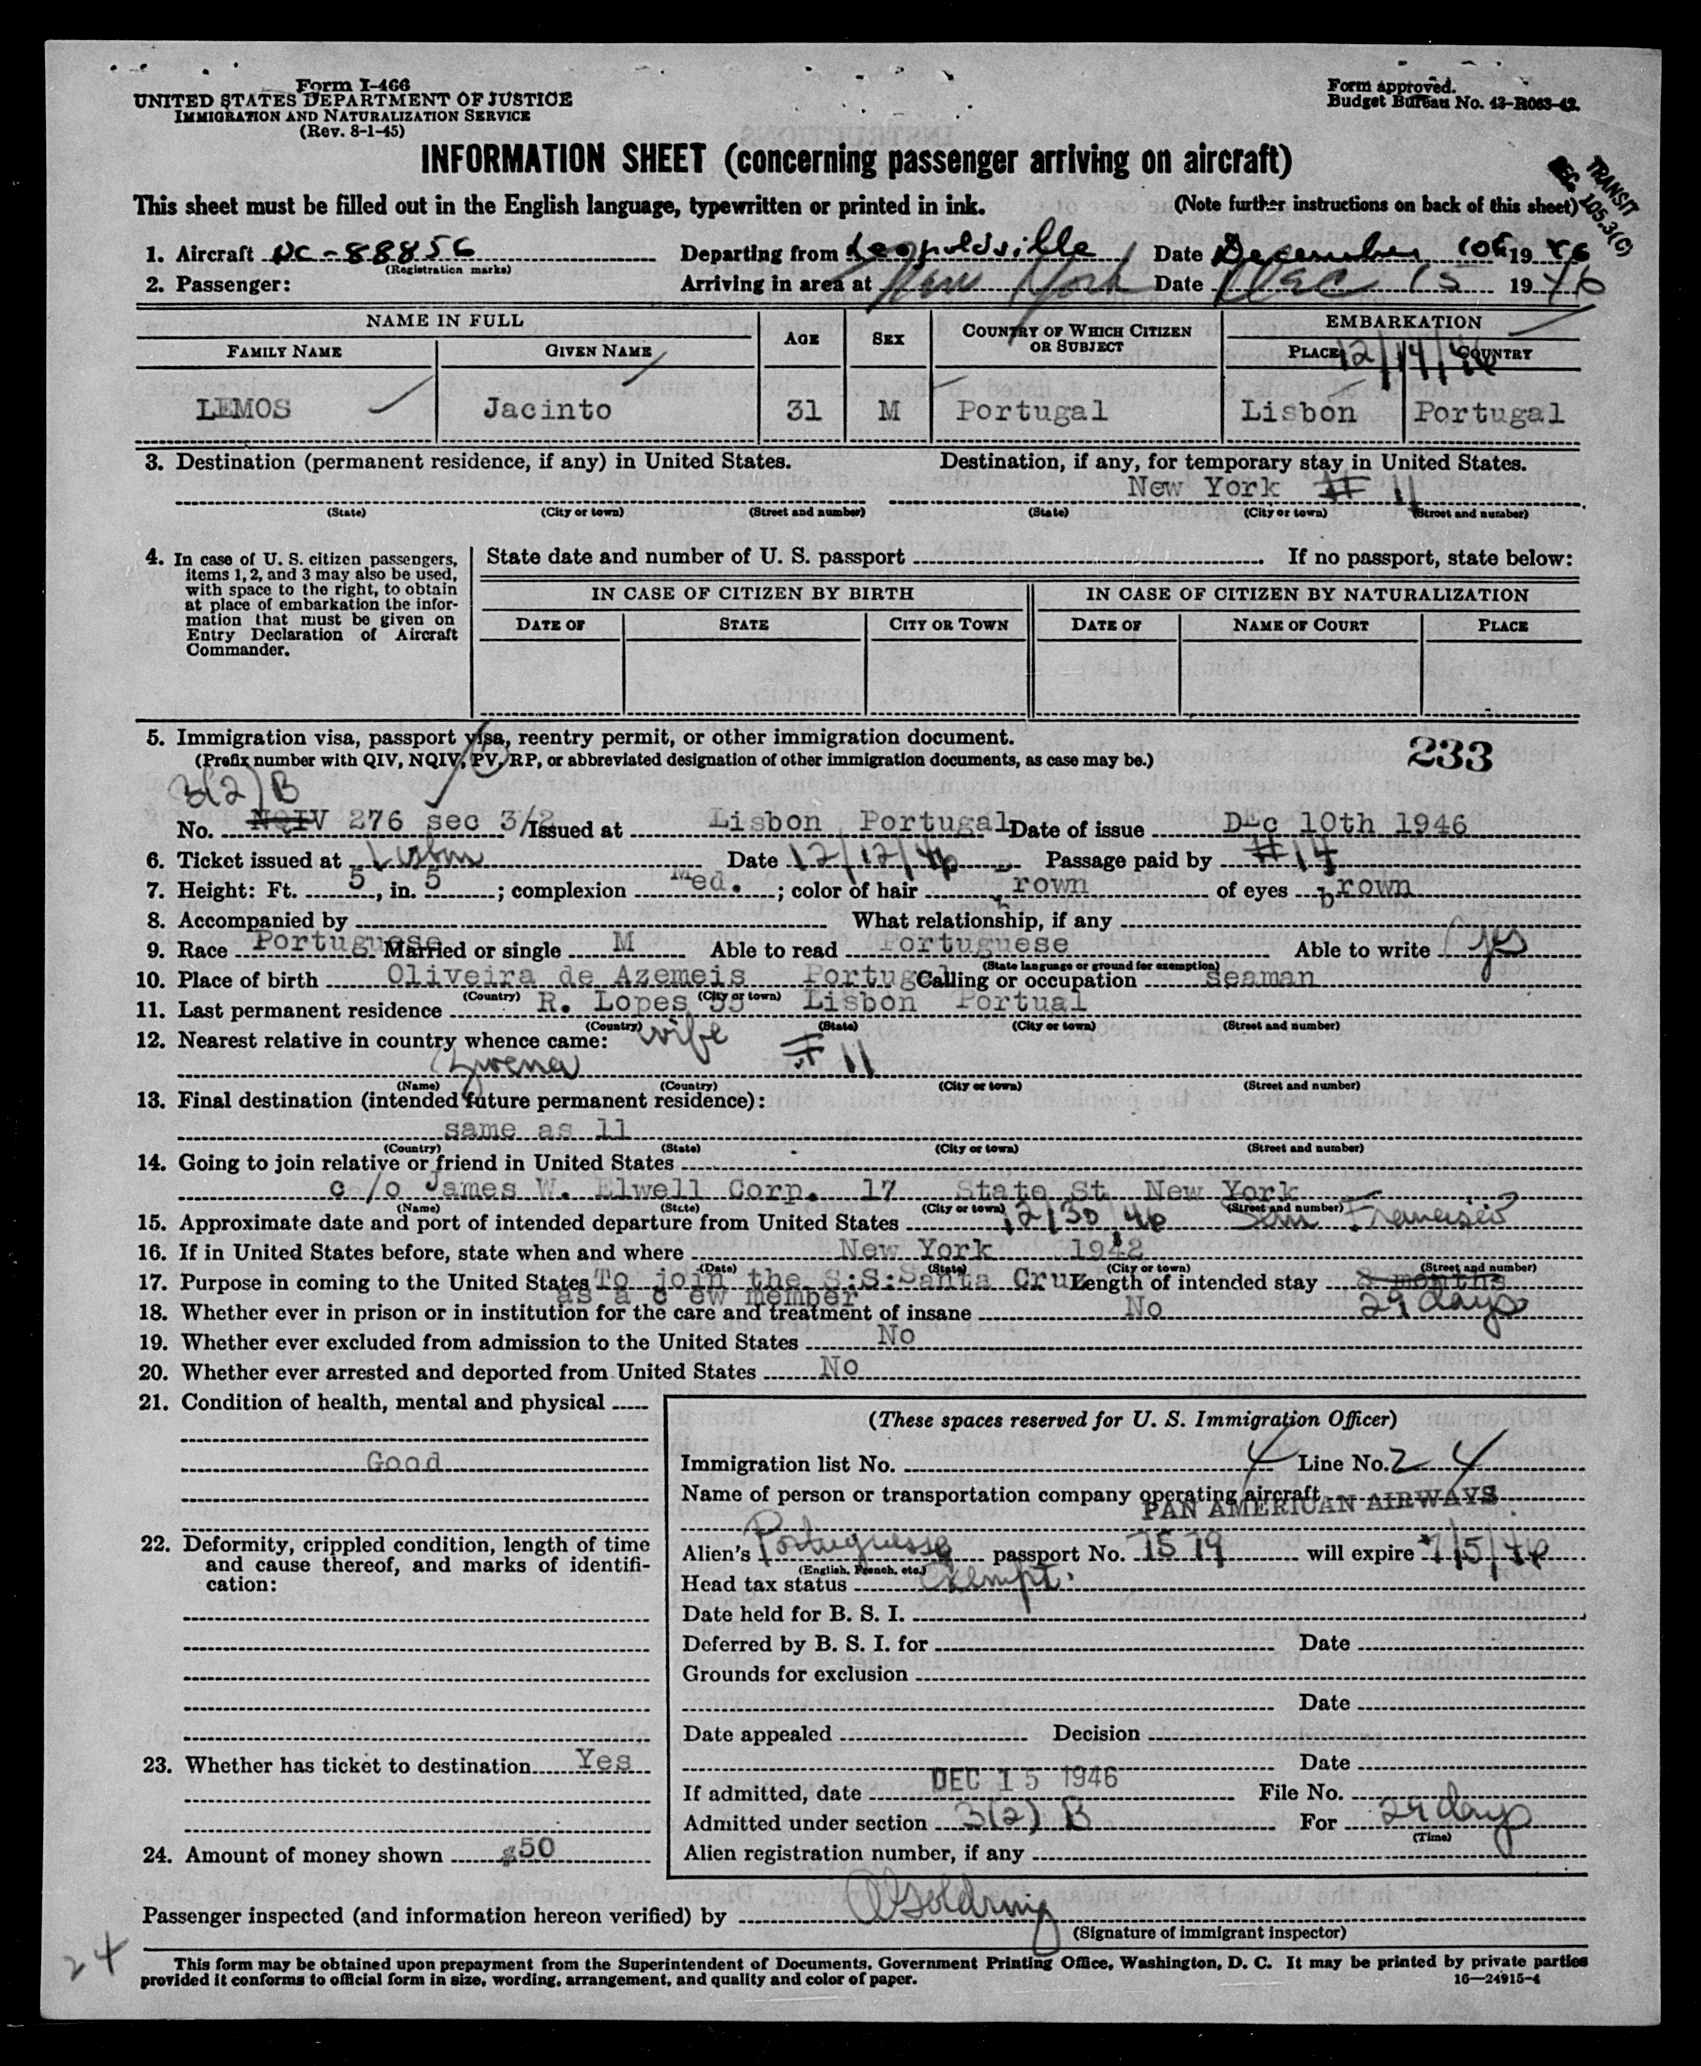 Form I-466
UNITED STATES DEPARTMENT OF JUSTICE
IMMIGRATION AND NATURALIZATION SERVICE
(Rev. 8-1-45)
Form approved.
Budget Bureau No. 43-R063-42.
INFORMATION SHEET (concerning passenger arriving on aircraft)
TRANSIT
SEC. 105.3(C)
This sheet must be filled out in the English language, typewritten or printed in ink. (Note further instructions on back of this sheet)
1. Aircraft NC-88856 Departing from Leopoldville Date December 1946
(Registration marks)
2. Passenger: Arriving in area at New York Date Dec 15 1946
NAME IN FULL AGE SEX COUNTRY OF WHICH CITIZEN OR SUBJECT EMBARKATION
FAMILY NAME GIVEN NAME PLACE 12/14/46 COUNTRY
LEMOS Jacinto 31 M Portugal Lisbon Portugal
3. Destination (permanent residence, if any) in United States. Destination, if any, for temporary stay in United States.
New York # 11
(State) (City or town) (Street and number) (State) (City or town) (Street and number)
4. In case of U. S. citizen passengers, items 1, 2, and 3 may also be used, with space to the right, to obtain at place of embarkation the information that must be given on Entry Declaration of Aircraft Commander.
State date and number of U. S. passport If no passport, state below:
IN CASE OF CITIZEN BY BIRTH IN CASE OF CITIZEN BY NATURALIZATION
DATE OF STATE CITY OR TOWN DATE OF NAME OF COURT PLACE
5. Immigration visa, passport visa, reentry permit, or other immigration document. 233
(Prefix number with QIV, NQIV, PV, RP, or abbreviated designation of other immigration documents, as case may be.)
3(2)B
No. NQIV 276 sec 3/2 Issued at Lisbon Portugal Date of issue Dec 10th 1946
6. Ticket issued at Lisbon Date 12/12/46 Passage paid by # 14
7. Height: Ft. 5, in. 5; complexion Med.; color of hair brown of eyes brown
8. Accompanied by What relationship, if any
9. Race Portuguese Married or single M Able to read Portuguese Able to write yes
(State language or ground for exemption)
10. Place of birth Oliveira de Azemeis Portugal Calling or occupation seaman
(Country) (City or town)
11. Last permanent residence R. Lopes 55 Lisbon Portual
(Country) (State) (City or town) (Street and number)
12. Nearest relative in country whence came: wife
# 11
(Name) (Country) (City or town) (Street and number)
13. Final destination (intended future permanent residence):
same as 11
(Country) (State) (City or town) (Street and number)
14. Going to join relative or friend in United States
c/o James W. Elwell Corp. 17 State St New York
(Name) (State) (City or town) (Street and number)
15. Approximate date and port of intended departure from United States 12/30/46 San Francisco
16. If in United States before, state when and where New York 1942
(Date) (State) (City or town) (Street and number)
17. Purpose in coming to the United States To join the S:S:Santa Cruz Length of intended stay 2 months
as a c ew member 29 days
18. Whether ever in prison or in institution for the care and treatment of insane No
19. Whether ever excluded from admission to the United States No
20. Whether ever arrested and deported from United States No
21. Condition of health, mental and physical
Good
22. Deformity, crippled condition, length of time and cause thereof, and marks of identification:
23. Whether has ticket to destination Yes
24. Amount of money shown $50
(These spaces reserved for U. S. Immigration Officer)
Immigration list No. 4 Line No. 2 4
Name of person or transportation company operating aircraft
PAN AMERICAN AIRWAYS
Alien's Portuguese passport No. 7579 will expire 7/5/46
(English, French, etc.)
Head tax status Exempt.
Date held for B. S. I.
Deferred by B. S. I. for Date
Grounds for exclusion
Date
Date appealed Decision
Date
If admitted, date DEC 15 1946 File No.
Admitted under section 3(2) B For 29 days
(Time)
Alien registration number, if any
Passenger inspected (and information hereon verified) by
(Signature of immigrant inspector)
24
This form may be obtained upon prepayment from the Superintendent of Documents, Government Printing Office, Washington, D. C. It may be printed by private parties
provided it conforms to official form in size, wording, arrangement, and quality and color of paper. 16—24915-4